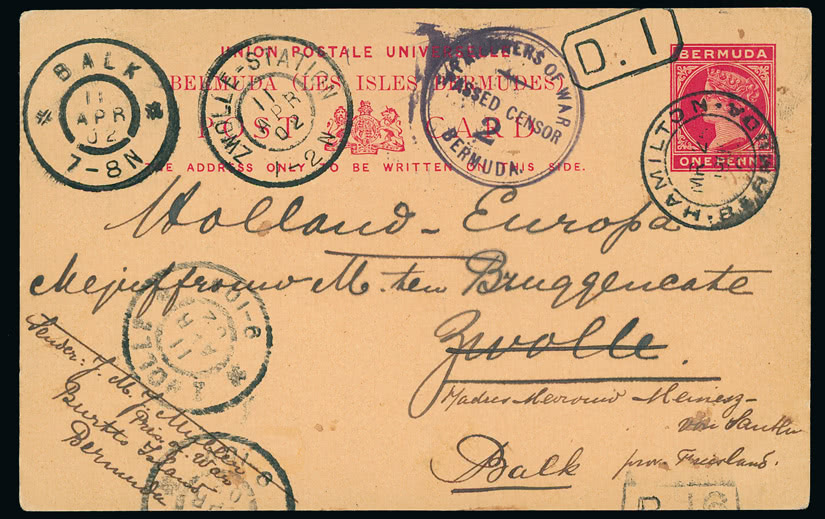 UNION POSTALE UNIVERSELLE
BERMUDA (LES ISLES BERMUDES)
POST CARD
THE ADDRESS ONLY TO BE WRITTEN ON THIS SIDE.
BERMUDA
ONE PENNY
BALK
11
APR
02
7-8N
ZWOLLE STATION
11
APR
02
1-2N
PRISONERS OF WAR
PASSED CENSOR
2
BERMUDA
D. 1
HAMILTON
BERMUDA
Holland - Europa
Mejuffrouw M. ten Bruggencate
Zwolle.
Balk
prov. Friesland.
ZWOLLE
11
APR
02
Sender: J. M.
Pris. o. War
Burtts Island
Bermuda